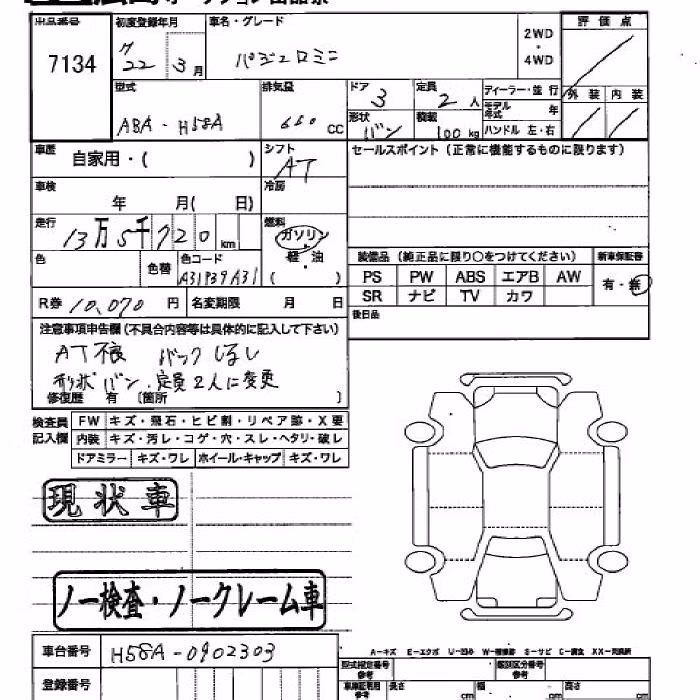 出品番号 初度登録年月 車名・グレード 評価点
7134 22 3月 パジェロミニ 2WD・4WD
型式 排気量 ドア 定員 ディーラー・並行 外装 内装
ABA-H58A 660 CC 3 2人 モデル年式 年
形状 積載 ハンドル 左・右
バン 100kg
車歴 自家用・( ) シフト AT セールスポイント(正常に機能するものに限ります)
車検 年 月( 日) 冷房
走行 13万5千720km 燃料 ガソリン
軽油
( )
色 色替 色コード A31P39A31
装備品(純正品に限り○をつけてください) 新車保証書
PS PW ABS エアB AW 有・無
SR ナビ TV カワ
R券 10,070円 名変期限 月 日 後日品
注意事項申告欄(不具合内容等は具体的に記入して下さい)
AT不良 バックしない
形状バン.定員2人に変更
修復歴 有 〔箇所 〕
検査員記入欄 FW キズ・飛石・ヒビ割・リペア跡・X要
内装 キズ・汚レ・コゲ・穴・スレ・ヘタリ・破レ
ドアミラー キズ・ワレ ホイール・キャップ キズ・ワレ
現状車
ノー検査・ノークレーム車
A-キズ E-エクボ U-凹み W-補修跡 S-サビ C-腐食 XX-交換済
車台番号 H58A-0902303 型式指定番号 参考 類別区分番号 参考
登録番号 長さ cm 幅 cm 高さ cm